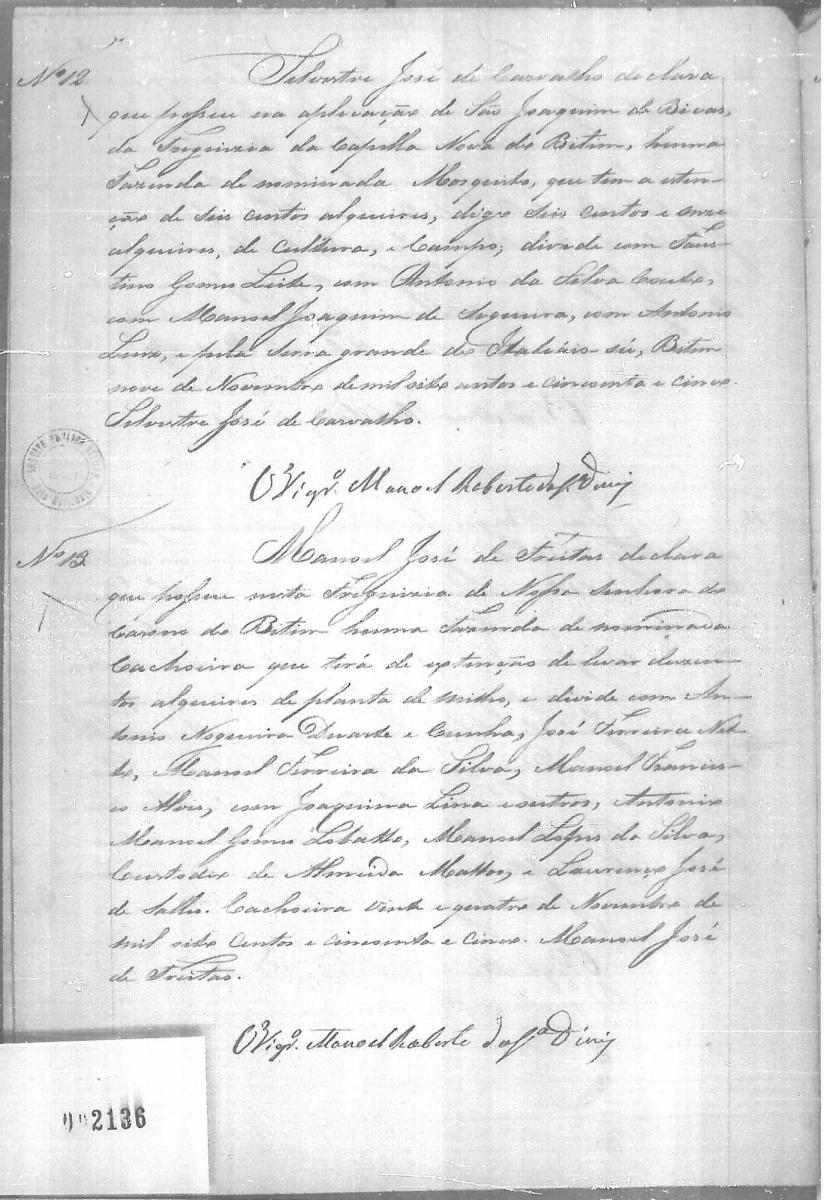 Nº 12
Silvestre José de Carvalho declara
que possue na aplicação de São Joaquim de Bicas,
da Freguizia da Capella Nova do Betim, huma
Fazenda de nominada Mosquito, que tem a esten-
ção de seis centos alqueires, digo seis centos e onze
alqueires, de cultura, e Campo; divide com Faus-
tino Gomes Leite, com Antonio da Silva Couto,
com Manoel Joaquim de Siqueira, com Antonio
Luiz, e pela serra grande do Betim
nove de Novembro de mil oito centos e cincoenta e cinco.
Silvestre José de Carvalho.
O Vigrº. Manoel Roberto da Sª Diniz
Nº 13
Manoel José de Freitas declara
que possue nesta Freguizia de Nossa Senhora do
Carmo do Betim huma Fazenda de nominada
Cachoeira que terá de extenção de levar duzen-
tos alqueires de planta de milho, e divide com An-
tonio Nogueira Duarte e Cunha, José Ferreira Net-
to, Manoel Ferreira da Silva, Manoel Francis-
co Alves, com Joaquina Lina e outros, Antonio
Manoel Gomes Lobatto, Manoel Lopes da Silva,
Custodio de Almeida Mattos, e Laurenço José
de Salles. Cachoeira vinte e quatro de Novembro de
mil oito centos e cincoenta e cinco. Manoel José
de Freitas.
O Vigrº. Manoel Roberto da Sª Diniz
002136